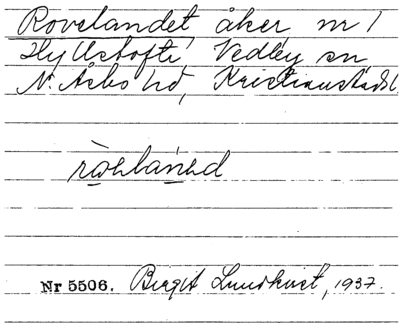 Rovelandet åker nr 1
Hyllstofta, Vedby sn
N. Åsbo hd, Kristianstads l.
Nr 5506. Birgit Lundkvist, 1937.